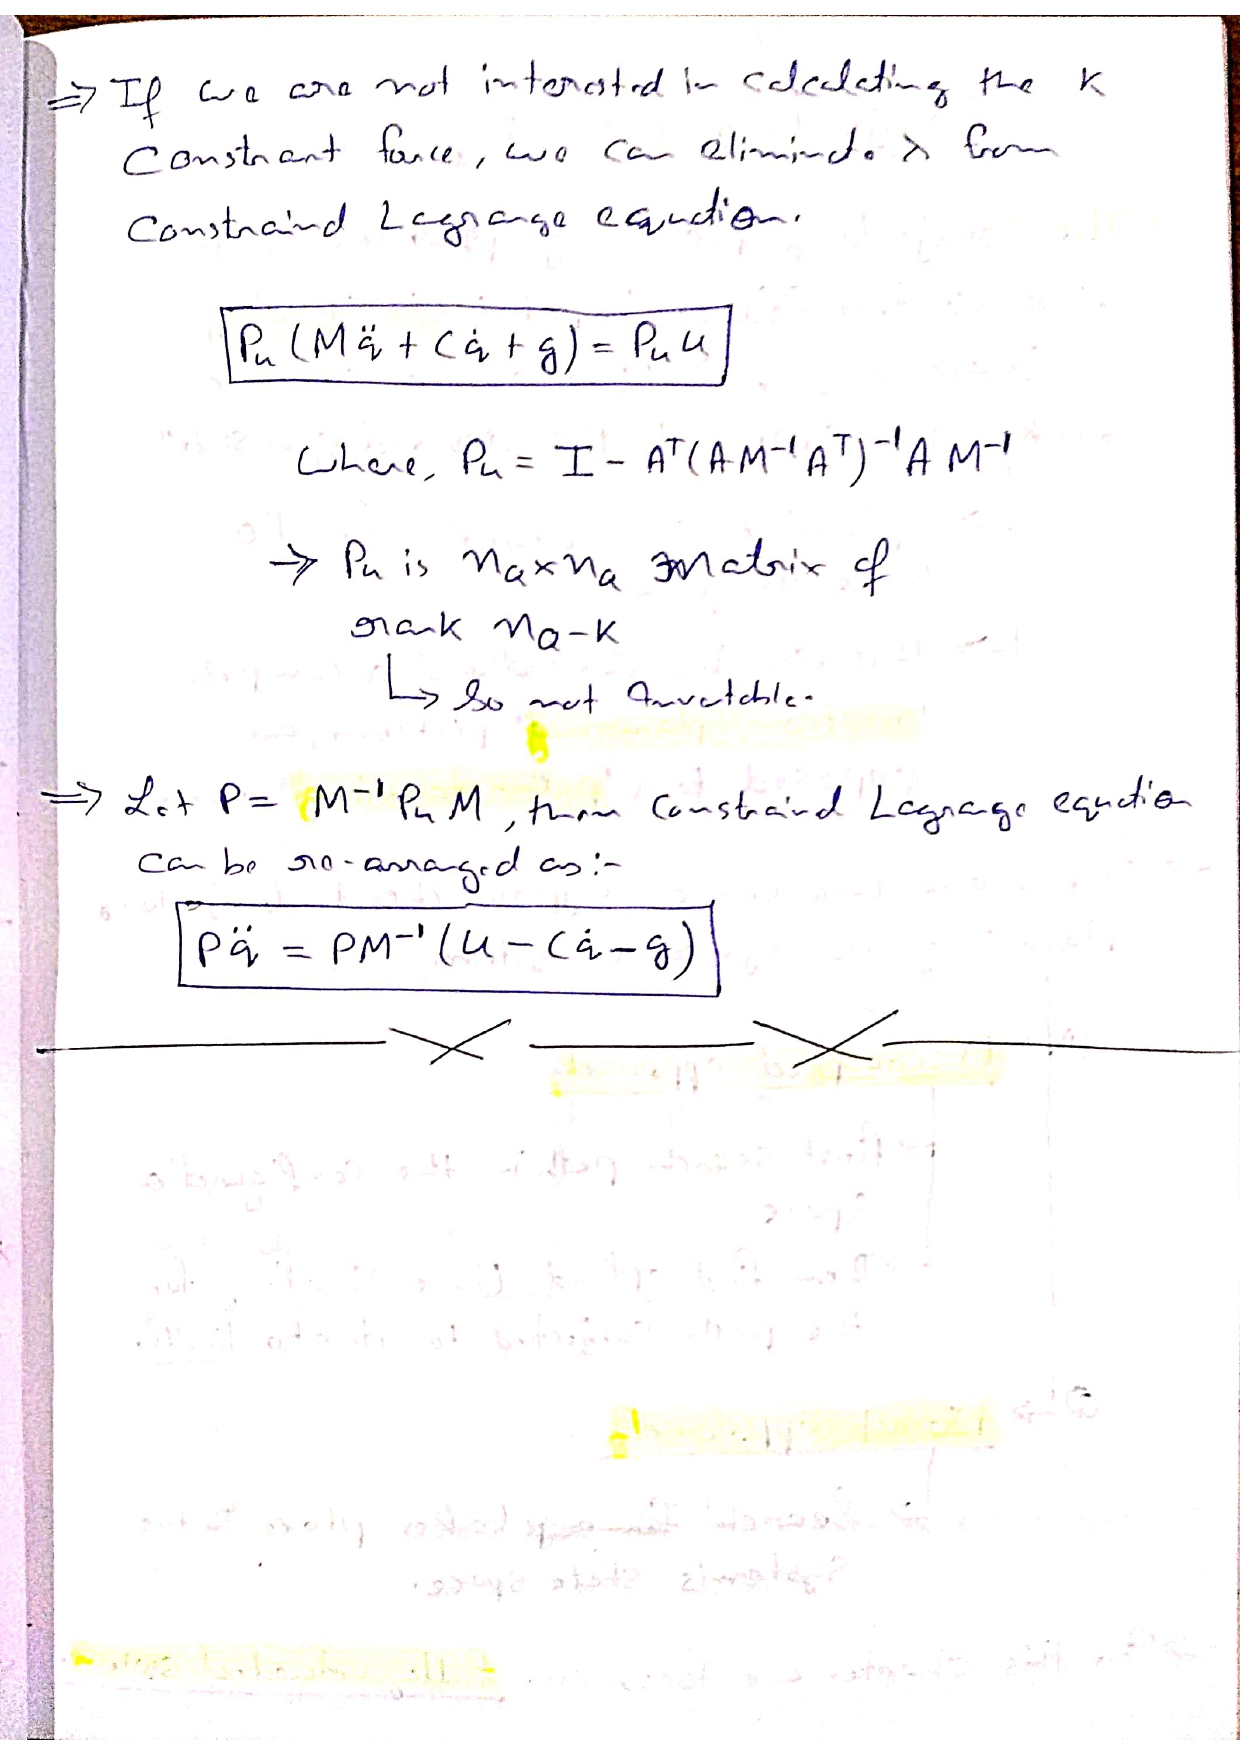 ⇒ If we are not interested in calculating the K
Constraint force, we can eliminate λ from
Constraind Lagrange equation.
Pᵤ (M q̈ + C q̇ + g) = Pᵤ u
Where, Pᵤ = I − Aᵀ(A M⁻¹ Aᵀ)⁻¹ A M⁻¹
→ Pᵤ is nₐ×nₐ matrix of
rank nₐ−K
↳ So not Invertable.
⇒ Let P = M⁻¹ Pᵤ M, then Constraind Lagrange equation
can be re-arranged as :-
P q̈ = P M⁻¹ (u − C q̇ − g)